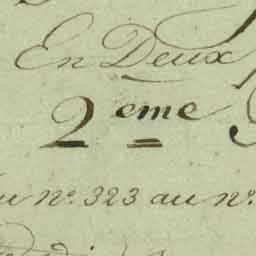 En Deux
2 eme
nº 323 au nº